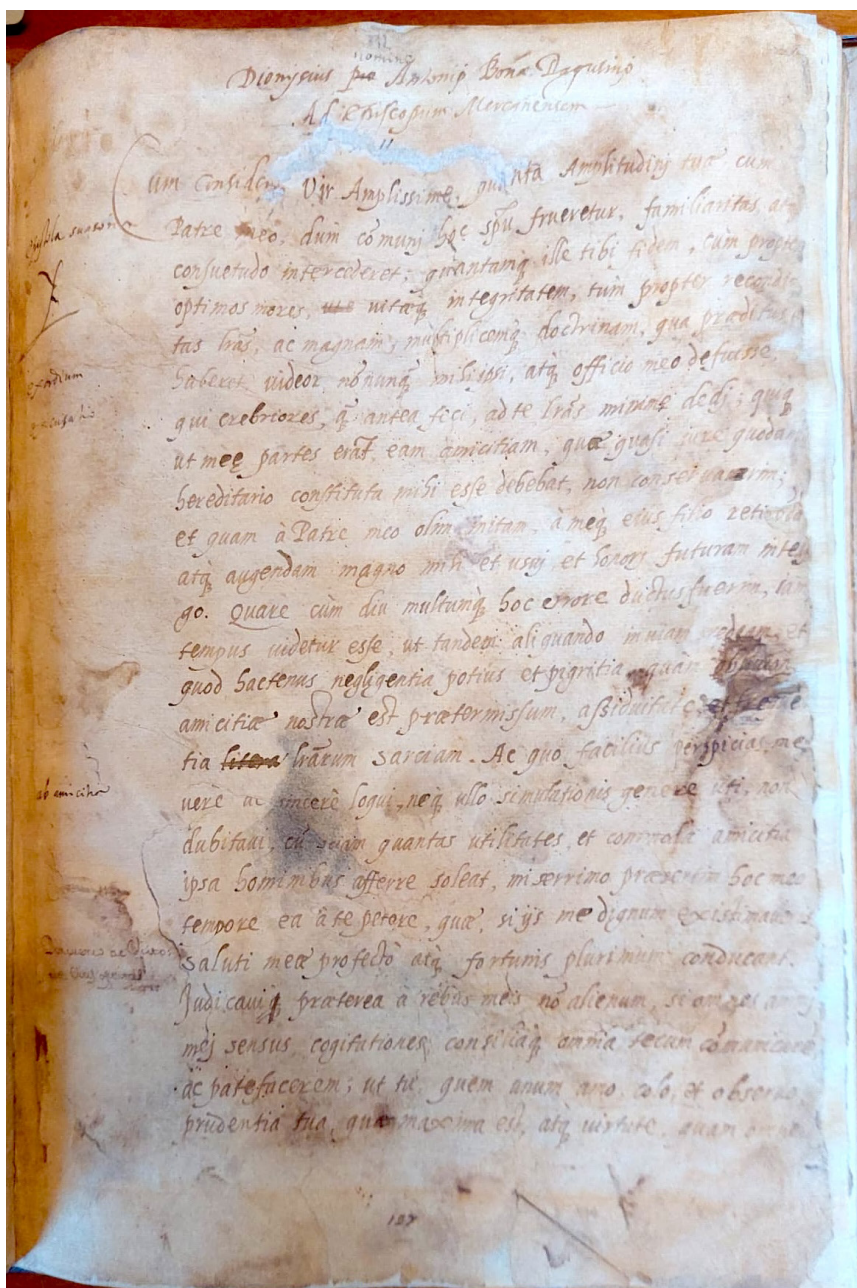 nomine
Dionysius pro Antonij Bonæ
Ad Episcopum
Cum Considero, Vir Amplissime, quanta Amplitudinj tuæ cum
Patre meo, dum cõmunj hoc spũ frueretur, familiaritas, at-
epistola suasoria
consuetudo intercederet; quantamq̃ ille tibi fidem, cum propter
optimos mores, vitæq̃ integritatem, tum propter recondi-
tas lrãs, ac magnam, multiplicemq̃ doctrinam, qua præditus
haberet videor nõnunq̃ mihi ipsi, atq̃ officio meo defuisse,
exordium
qui crebriores, q̃ antea feci, ad te lrãs minime dedj; quiq̃
ut meę partes erãt, eam amicitiam, quæ quasi iure quodam
hereditario constituta mihi esse debebat, non conservaverim;
et quam à Patre meo olim initam, à meq̃ eius filio
atq̃ augendam magno mihi et usuj, et honorj futuram intelj
go. Quare cùm diu multumq̃ hoc errore ductus fuerim, iam
tempus videtur esse, ut tandem aliquando in viam et
quod hactenus negligentia potius et pigritia, quàm
amicitiæ nostræ est prætermissum, aßiduitate
tia litera lrãrum sarciam. Ac quo facilius perspicias, me
ab amicitia
verè ac sincerè loqui, neq̃ ullo simulationis genere uti, non
dubitavi, cũ sciam quantas utilitates, et commoda amicitia
ipsa hominibus afferre soleat, miserrimo præsertim hoc meo
tempore ea à te petere, quæ, si ijs me dignum existimaveris
saluti meæ profectò atq̃ fortunis plurimum conducant.
Judicaviq̃ præterea à rebus meis nõ alienum, si omnes animj
mej sensus, cogitationes, consiliaq̃ omnia tecum cõmunicarem
ac patefacerem; ut tu, quem unum amo, colo, et observo,
prudentia tua, quæ maxima est, atq̃ virtute, quam omnes
127